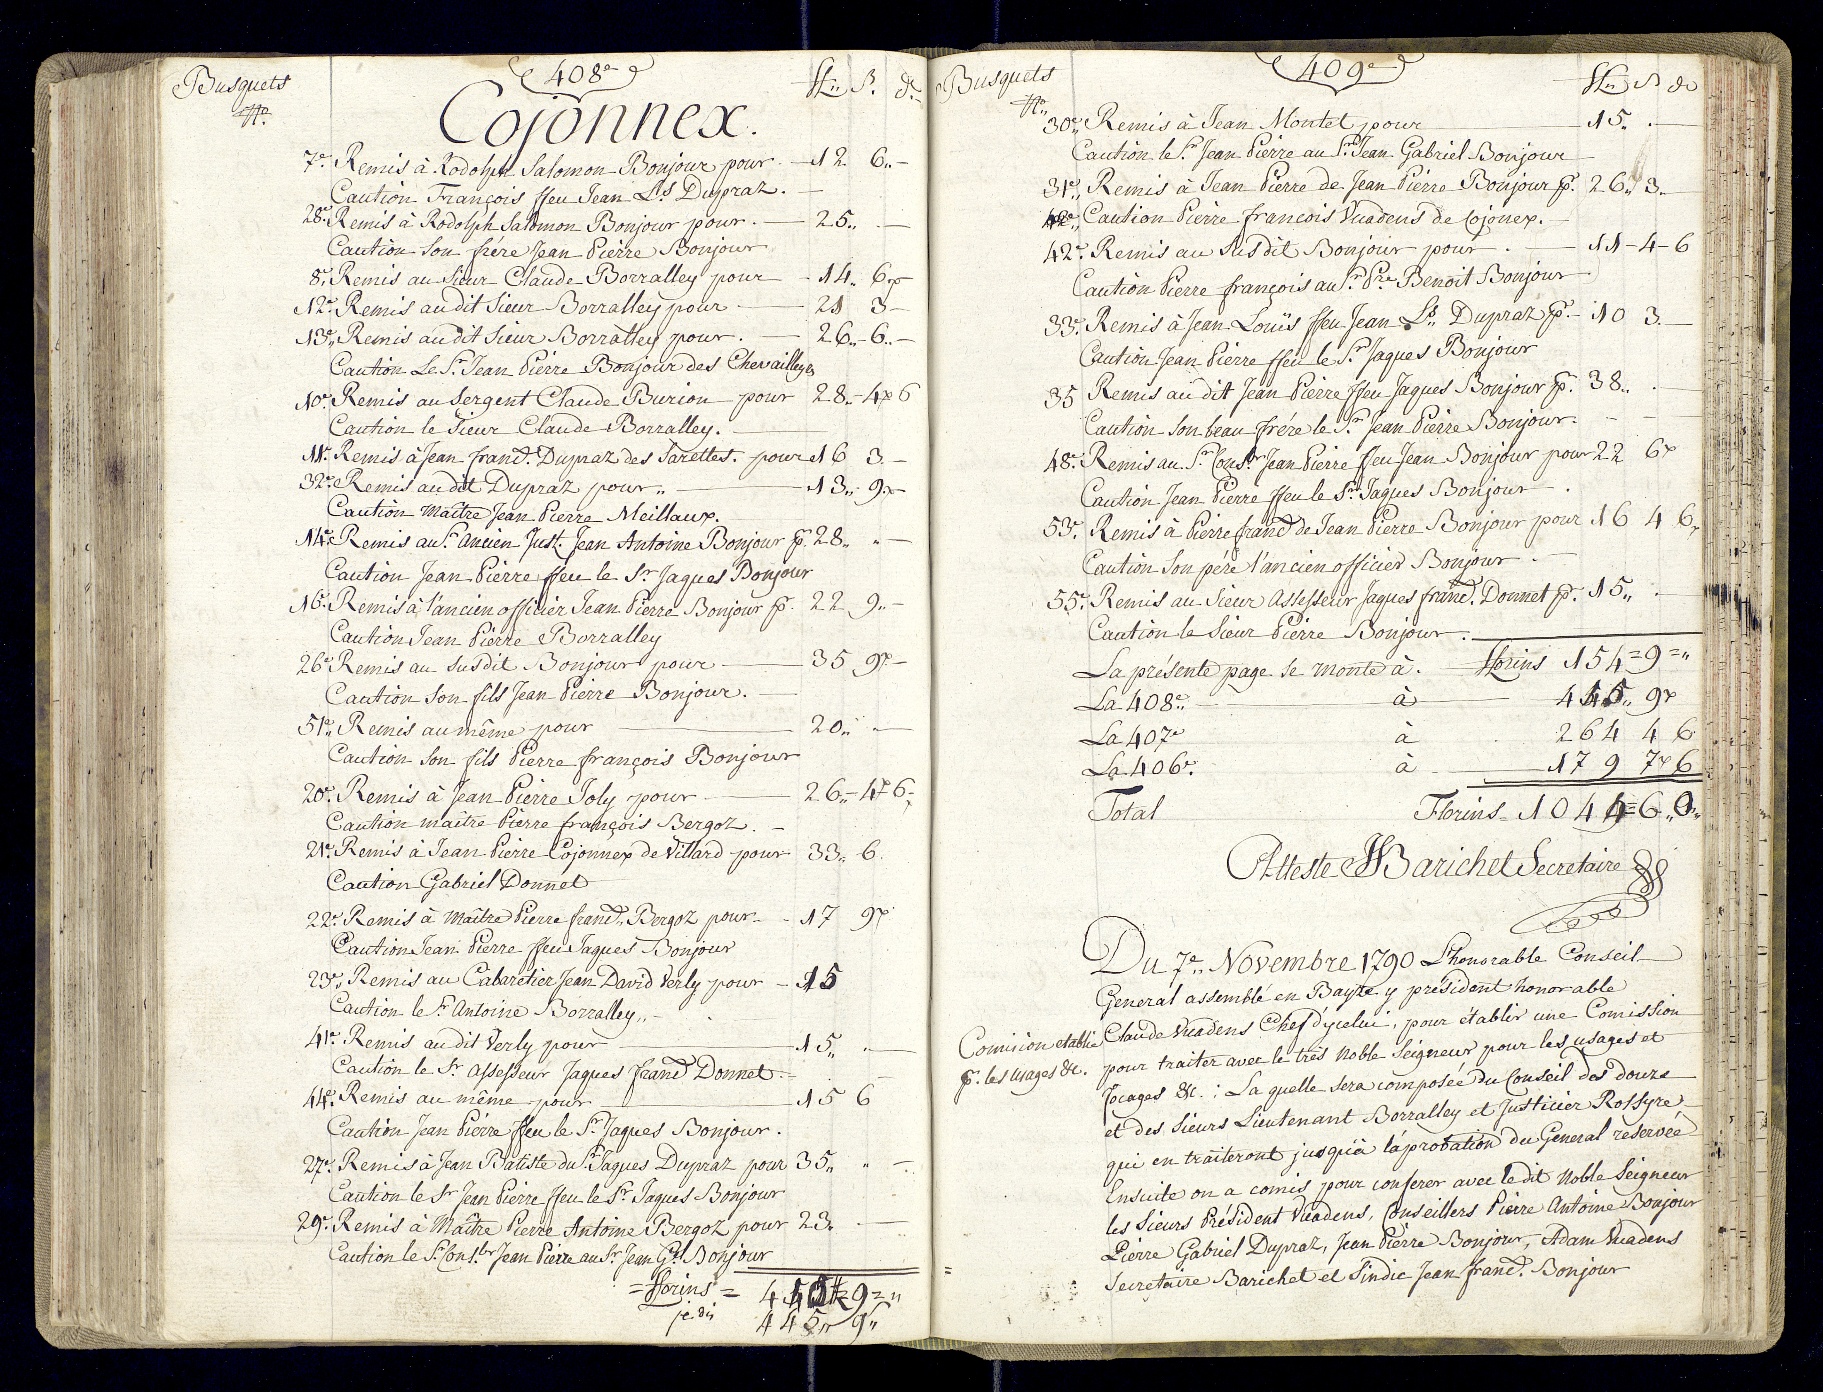 408e
Busquets
No.
fl.. S. d.
Cojonnex.
7e Remis à Rodolph Salomon Bonjour pour. — 12 6.. —
Caution François ffeu Jean Ls Dupraz. —
28e Remis à Rodolph Salomon Bonjour pour. — 25.. . —
Caution son frére Jean Pierre Bonjour
8e, Remis au Sieur Claude Borralley pour — 14.. 6 —
12e Remis audit Sieur Borralley pour — 21 3 —
13e.. Remis audit Sieur Borralley pour. — 26.. — 6.. —
Caution Le Sr. Jean Pierre Bonjour des Chevailleyes
10e Remis au Sergent Claude Burion pour 28.. — 4 6
Caution le Sieur Claude Borralley. —
11e. Remis à Jean francs. Dupraz des Sarettes. pour 16 3. —
32e Remis audit Dupraz pour.. — 13.. 9. —
Caution Maître Jean Pierre Meillaux.
14e Remis au Sr. Ancien Just. Jean Antoine Bonjour p. 28.. .. —
Caution Jean Pierre ffeu le Sr Jaques Bonjour
16e. Remis à l'ancien officier Jean Pierre Bonjour p. 22 9.. —
Caution Jean Pierre Borralley
26e Remis au susdit Bonjour pour — 35 9 —
Caution son fils Jean Pierre Bonjour. —
51e.. Remis au même pour — 20.. —
Caution son fils Pierre françois Bonjour
20e. Remis à Jean Pierre Joly pour — 26.. — 4 6
Caution maître Pierre françois Bergoz. —
21e Remis à Jean Pierre Cojonnex de Villard pour 33.. 6.
Caution Gabriel Donnet
22e Remis à Maître Pierre francs. Bergoz pour — 17 9
Caution Jean Pierre ffeu Jaques Bonjour
23e.. Remis au Cabaretier Jean David Verly pour — 15
Caution le Sr. Antoine Borralley.. —
41e Remis audit Verly pour — 15.. . —
Caution le Sr assesseur Jaques francs Donnet. —
44e. Remis au même pour — 15 6
Caution Jean Pierre ffeu le Sr Jaques Bonjour.
27e. Remis à Jean Batiste du Sr. Jaques Dupraz pour 35.. .. —
Caution le Sr Jean Pierre ffeu le Sr Jaques Bonjour
29e. Remis à Maître Pierre Antoine Bergoz pour 23. . —
Caution le Sr. Conser Jean Pierre au Sr Jean Gl. Bonjour
= fflorins = 445 = 9 = ..
je dis 445.. 9..
409e
Busquets
No..
fl.. S d
30e.. Remis à Jean Montet pour — 15.. . —
Caution le Sr. Jean Pierre au Sr Jean Gabriel Bonjour
31e.. Remis à Jean Pierre de Jean Pierre Bonjour p. 26.. 3.. —
Caution Pierre francois Vuadens de Cojonex. —
42e. Remis au susdit Bonjour pour . — 11 - 4 - 6
Caution Pierre françois au Sr. Pre Benoit Bonjour
33e. Remis à Jean Louïs ffeu Jean Ls. Dupraz p. — 10 3. —
Caution Jean Pierre ffeu le Sr. Jaques Bonjour
35 Remis audit Jean Pierre ffeu Jaques Bonjour p. 38.. . —
Caution son beau frére le Sr Jean Pierre Bonjour.
48e. Remis au Sr. Conser Jean Pierre ffeu Jean Bonjour pour 22 6
Caution Jean Pierre ffeu le Sr Jaques Bonjour — .
53e. Remis à Pierre francs de Jean Pierre Bonjour pour 16 4 6
Caution son pére l'ancien officier Bonjour —
55e. Remis au Sieur Assesseur Jaques francs. Donnet p. 15.. . —
Caution le Sieur Pierre Bonjour.
La présente page se monte à. — fflorins 154 = 9 = ..
La 408e.. — à — 445.. 9
La 407e à . 264 4 6
La 406e. à — 179 7 6
Total Florins 1044 = 6.. 0..
Atteste Barichet Secretaire
Du 7e.. Novembre 1790 L'honorable Conseil
General assemblé en Bayze y président honorable
Claude Vuadens Chef d'ycelui, pour établir une Comission
Comision etablie
p. les usages &c.
pour traiter avec le très Noble Seigneur pour les usages et
focages &c. ; La quelle sera composée du Conseil des douze
et des Sieurs Lieutenant Borralley et Justicier Rossyre
qui en traiteront jusquïà lâprobation du General réservée
Ensuite on a comis pour conferer avec ledit Noble Seigneur
les Sieurs Président Vuadens, Conseillers Pierre Antoine Bonjour
Pierre Gabriel Dupraz, Jean Pierre Bonjour, Adam Vuadens
Secretaire Barichet et Sindic Jean francs. Bonjour